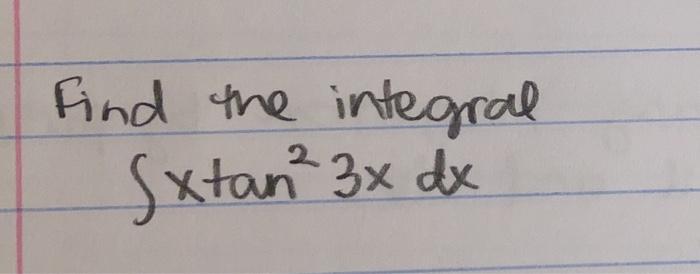 Find the integral
∫xtan² 3x dx